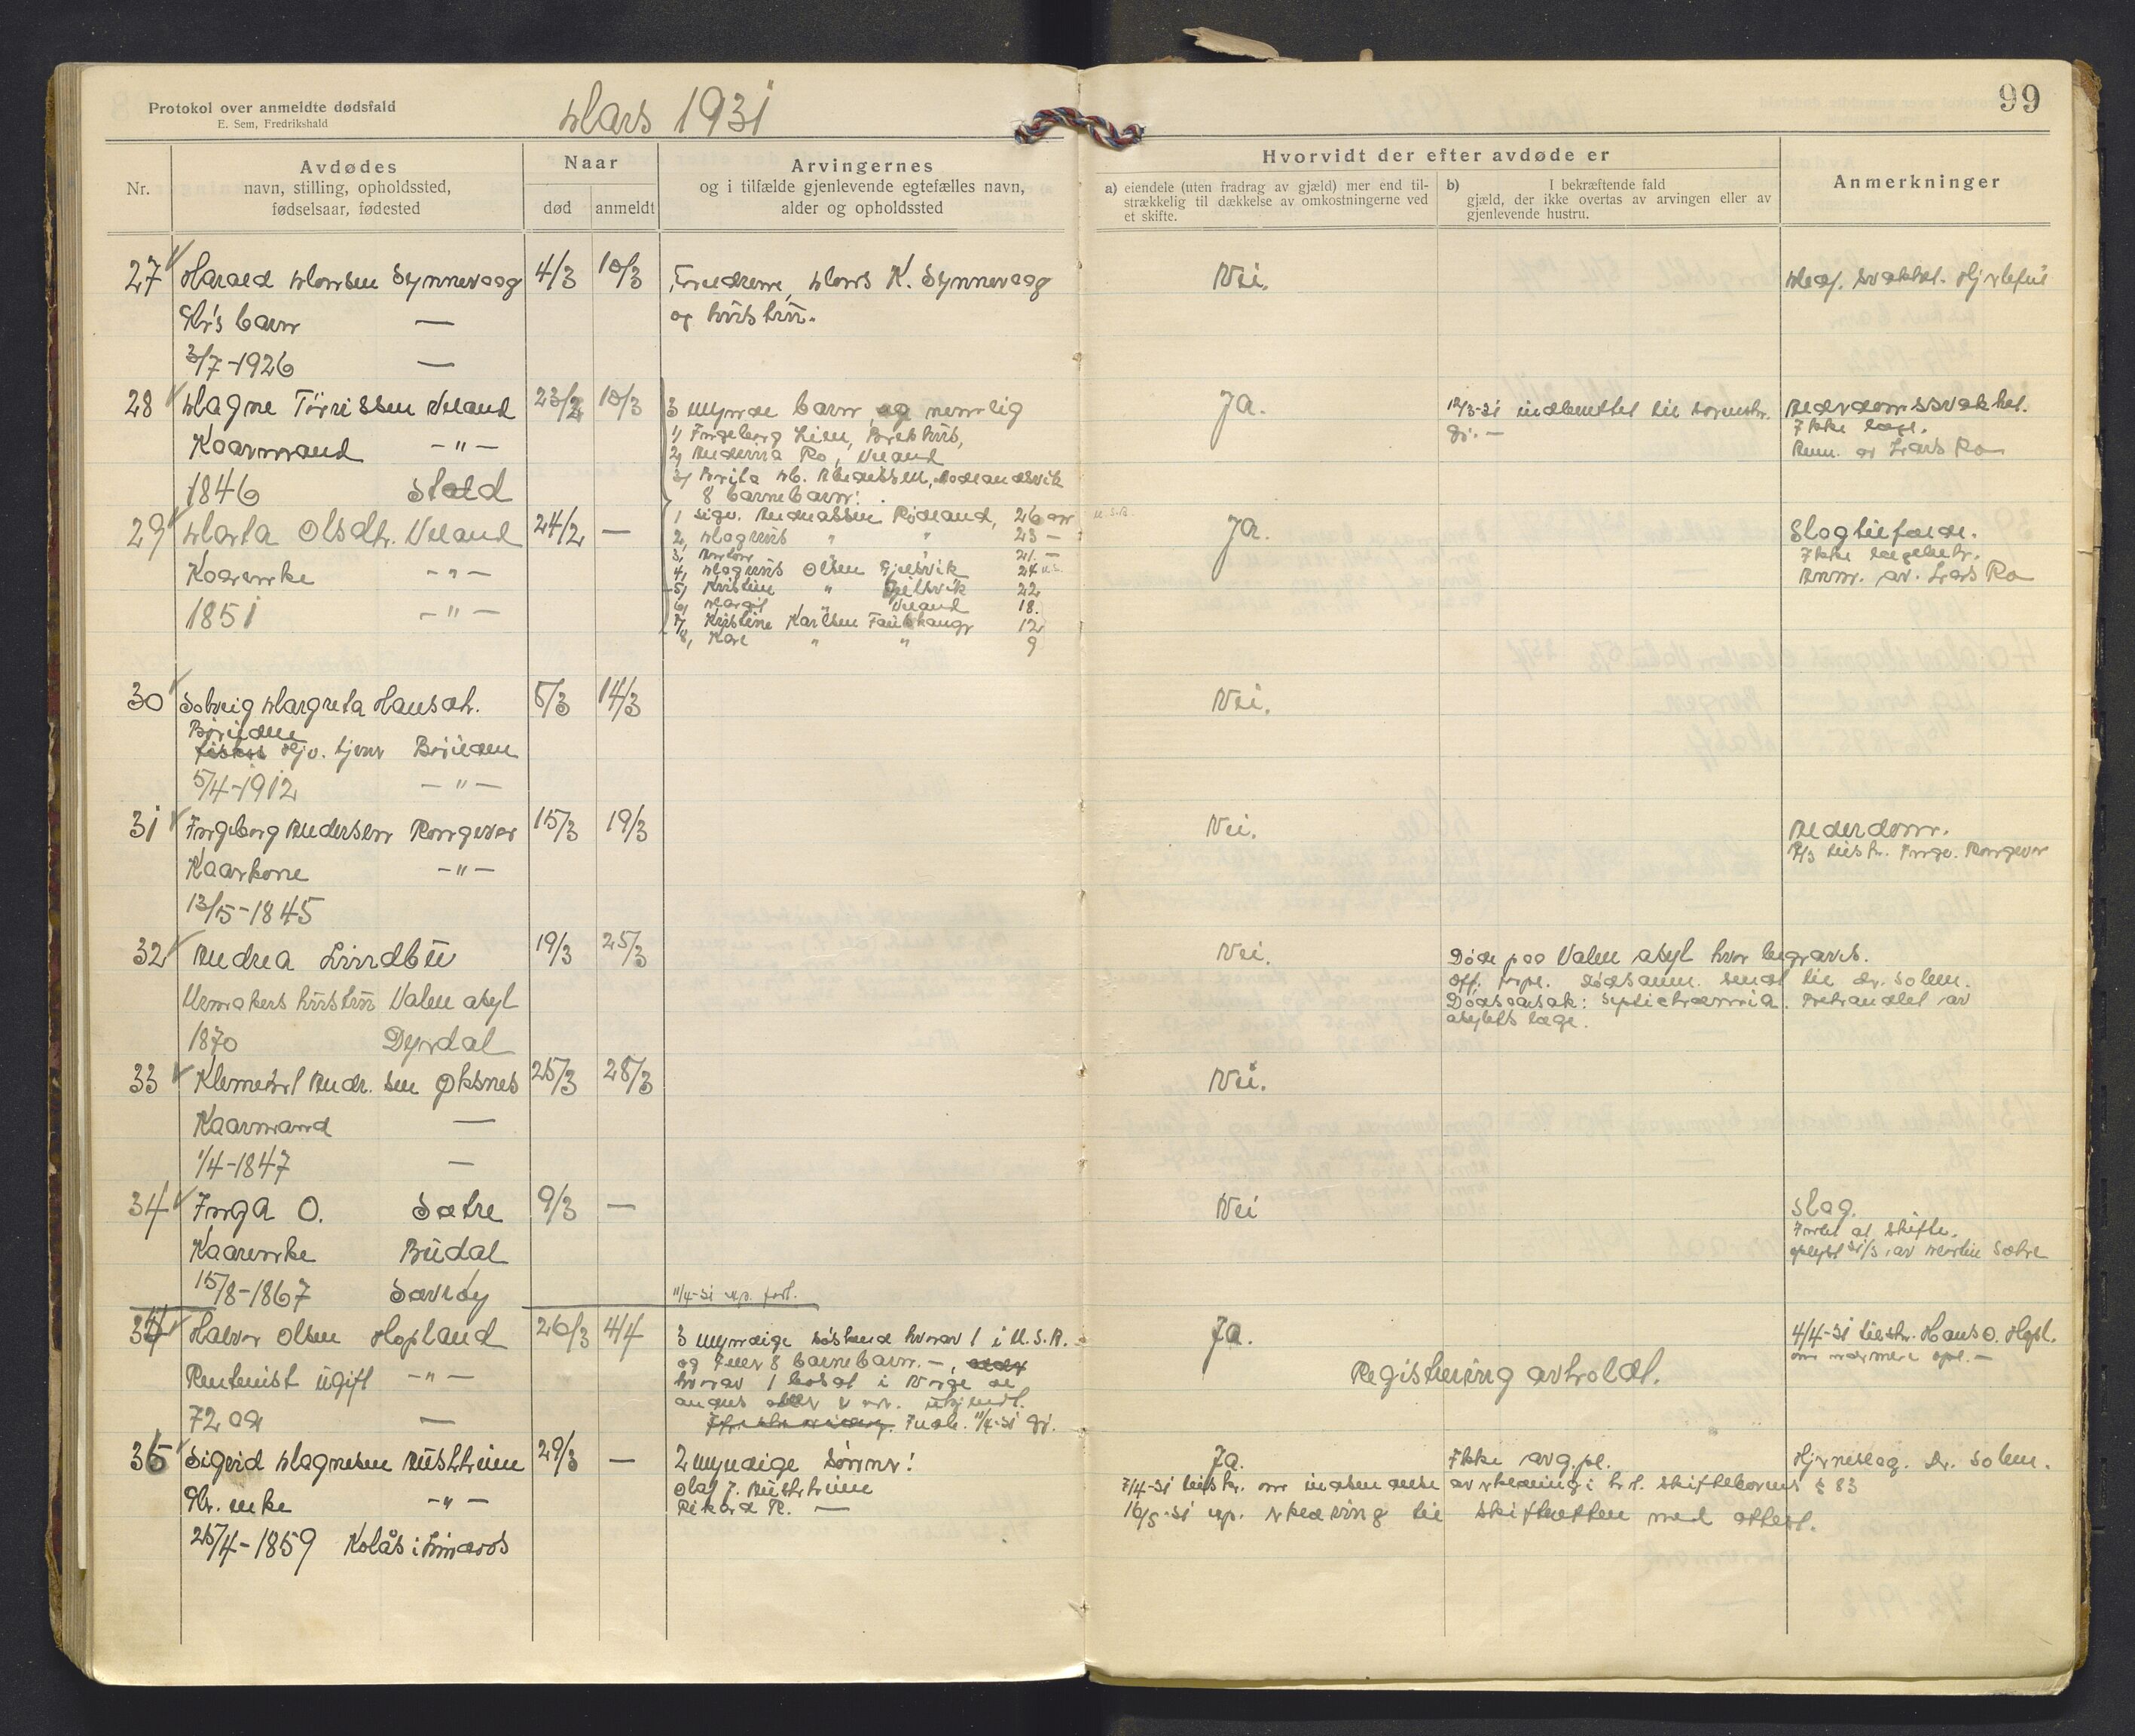 Protokol over anmeldte dødsfald
E. Sem, Fredrikshald
Mars 1931
99
Nr.
Avdødes
navn, stilling, opholdssted,
fødselsaar, fødested
Naar
død
anmeldt
Arvingernes
og i tilfælde gjenlevende egtefælles navn,
alder og opholdssted
Hvorvidt der efter avdøde er
a) eiendele (uten fradrag av gjæld) mer end til-
strækkelig til dækkelse av omkostningerne ved
et skifte.
b) I bekræftende fald
gjæld, der ikke overtas av arvingen eller av
gjenlevende hustru.
Anmerkninger
27 Harald Monsen Synnevaag 4/3 10/3 Forældrene Mons K. Synnevaag Nei.
Gbr's barn — og hustru.
3/7-1926 —
28 Magne Tørrissen Veland 23/2 10/3 3 myndige barn og nemlig Ja. Alderdomssvakhet.
Kaarmand -"- 1, Ingeborg Lien, Ikke læge.
2, Andrina Ro, Veland Anm. av Lars Ro
1846 Stord
8 barnebarn:
29 Marta Olsdtr. Veland 24/2 — 1, Sigv. Andreassen Rødland, 26 aar U.S.A. Ja. Slagtilfælde.
2, Magnus " " 23 — Ikke lægebeh.
Kaarenke -"- 21 — Anm. av. Lars Ro
4, Magnus Olsen Gjelsvik 24
5, Kristine " Gjelsvik 22
1851 -"- 6, Margit " Veland 18.
7, Kristine Karlsen Fauskanger 12
8, Kare " " 9
30 Solveig Margreta Hansdtr. 5/3 14/3 Nei.
Børilden
Hjv. tjener Børilden
5/4-1912 -"-
31 Ingeborg Andersen Rongevær 15/3 19/3 Nei. Alderdom.
Kaarkone -"- tilskr. Ingv. Rongevær
13/5-1845
32 Andrea Lindbü 19/3 25/3 Nei. Døde paa Valen asyl hvor begraves.
Urmakers hustru Valen asyl Off. forpl. Dødsanm. sendt til dr. Solem.
Dødsaarsak: Septichæmia. Behandlet av
asylets læge.
1870 Dyrdal
33 Klemet Andr. sen Øksnes 25/3 28/3 Nei.
Kaarmand —
1/4-1847 —
34 Inga O. Sætre 9/3 — Nei Slag.
Kaarenke Budal Intet at skifte.
oplyst 31/3 av Martin Sætre
15/8-1867 Sævrøy 11/4-31
Halvor Olsen Hopland 26/3 4/4 3 myndige søskend hvorav 1 i U.S.A. Ja. 4/4-31 tilskr. Hans O. Hopl.
8 barnebarn. — om nærmere opl. —
Rentenist ugift -"- hvorav 1 bosat i Norge de Registrering avholdt.
72 aar —
36 Sigrid Magnesen Austrheim 29/3 — 2 myndige sønner: Ja. Ikke avg.pl. Hjerneslag. Dr. Solem.
Gbr. enke -"- Olaf J. Austrheim 7/4-31 tilskr. om indsendelse av erklæring i h.t. skifteloven § 83
Rikard R. — 16/5-31 erklæring til skifteretten med attest.
25/4-1859 Kolås i Lindaas